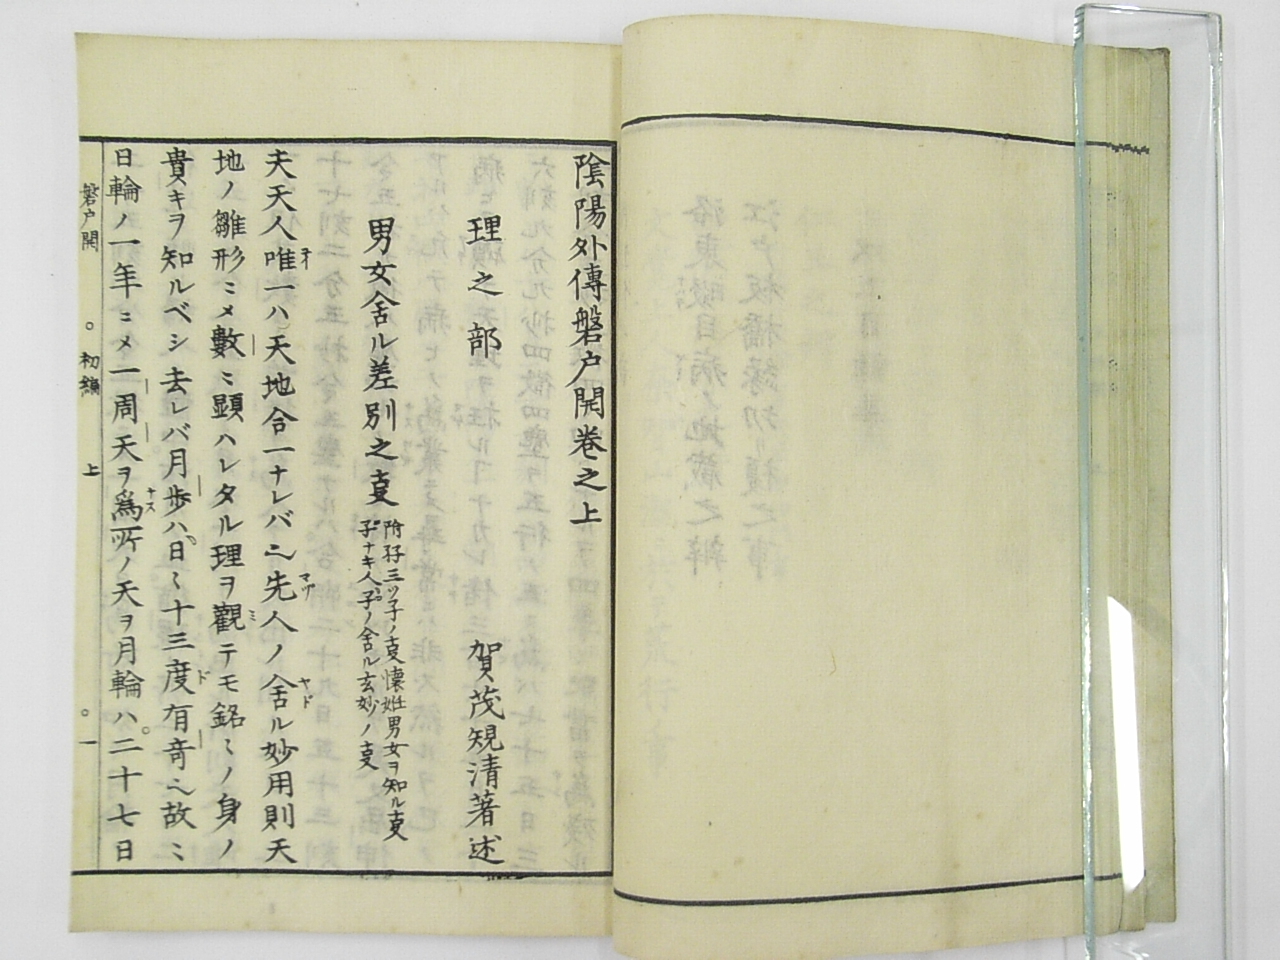 陰陽外傳磐户開卷之上
理之部　賀茂規清著述
男女舎ル差別之㕝
附孖三ツ子ノ㕝懐姙男女ヲ知ル㕝
子ナキ人子ノ舎ル玄妙ノ㕝
夫天人唯一ハ天地合一ナレバ先人ノ舎ル妙用則天
地ノ雛形ニメ數ニ顕ハレタル理ヲ觀テモ銘〻ノ身ノ
貴キヲ知ルベシ去レバ月歩ハ日〻十三度有竒故ニ
日輪ノ一年ニメ一周天ヲ爲所ノ天ヲ月輪ハ二十七日
磐户開　初編　上　一